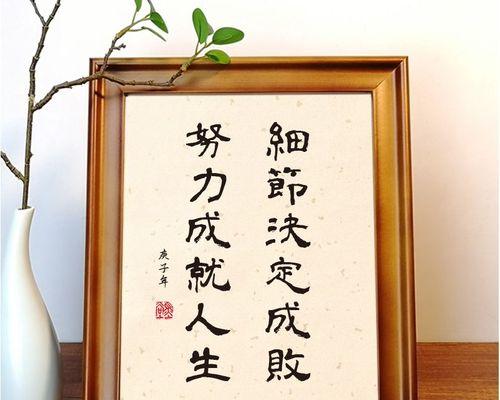 細節決定成敗
努力成就人生
庚子年